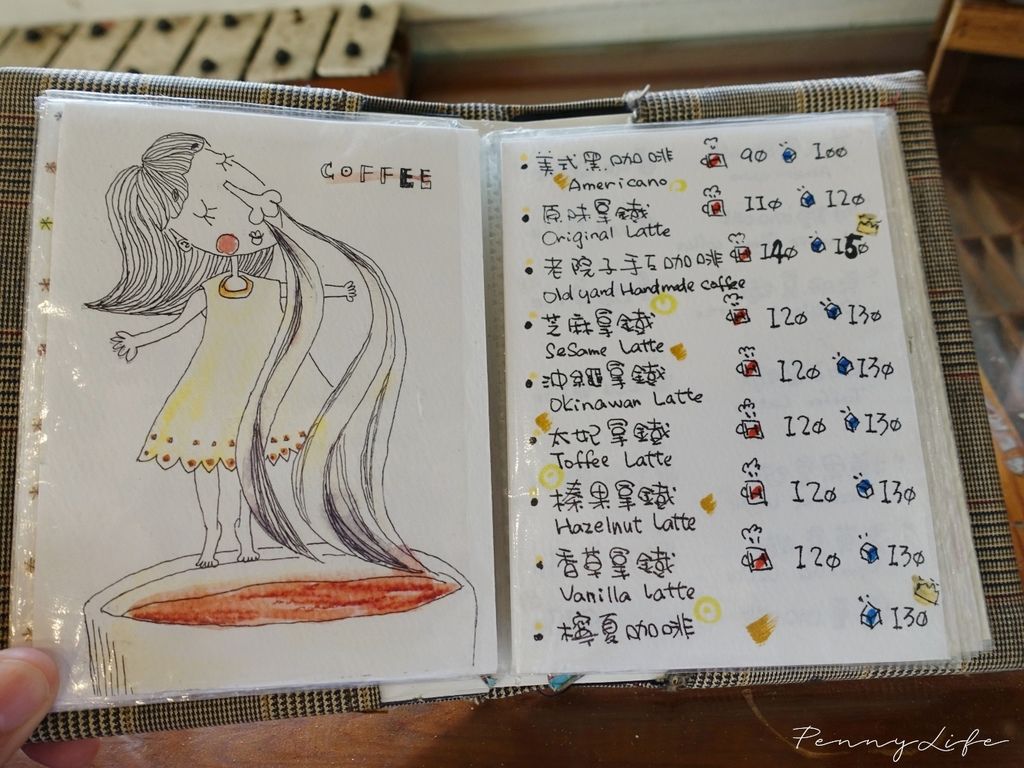 COFFEE
美式黑咖啡 90 100
Americano
原味拿鐵 110 120
Original Latte
老院子手工咖啡 140 150
Old yard Handmade coffee
芝麻拿鐵 120 130
Sesame Latte
沖繩拿鐵 120 130
Okinawan Latte
太妃拿鐵 120 130
Toffee Latte
榛果拿鐵 120 130
Hazelnut Latte
香草拿鐵 120 130
Vanilla Latte
檸夏咖啡 130
PennyLife